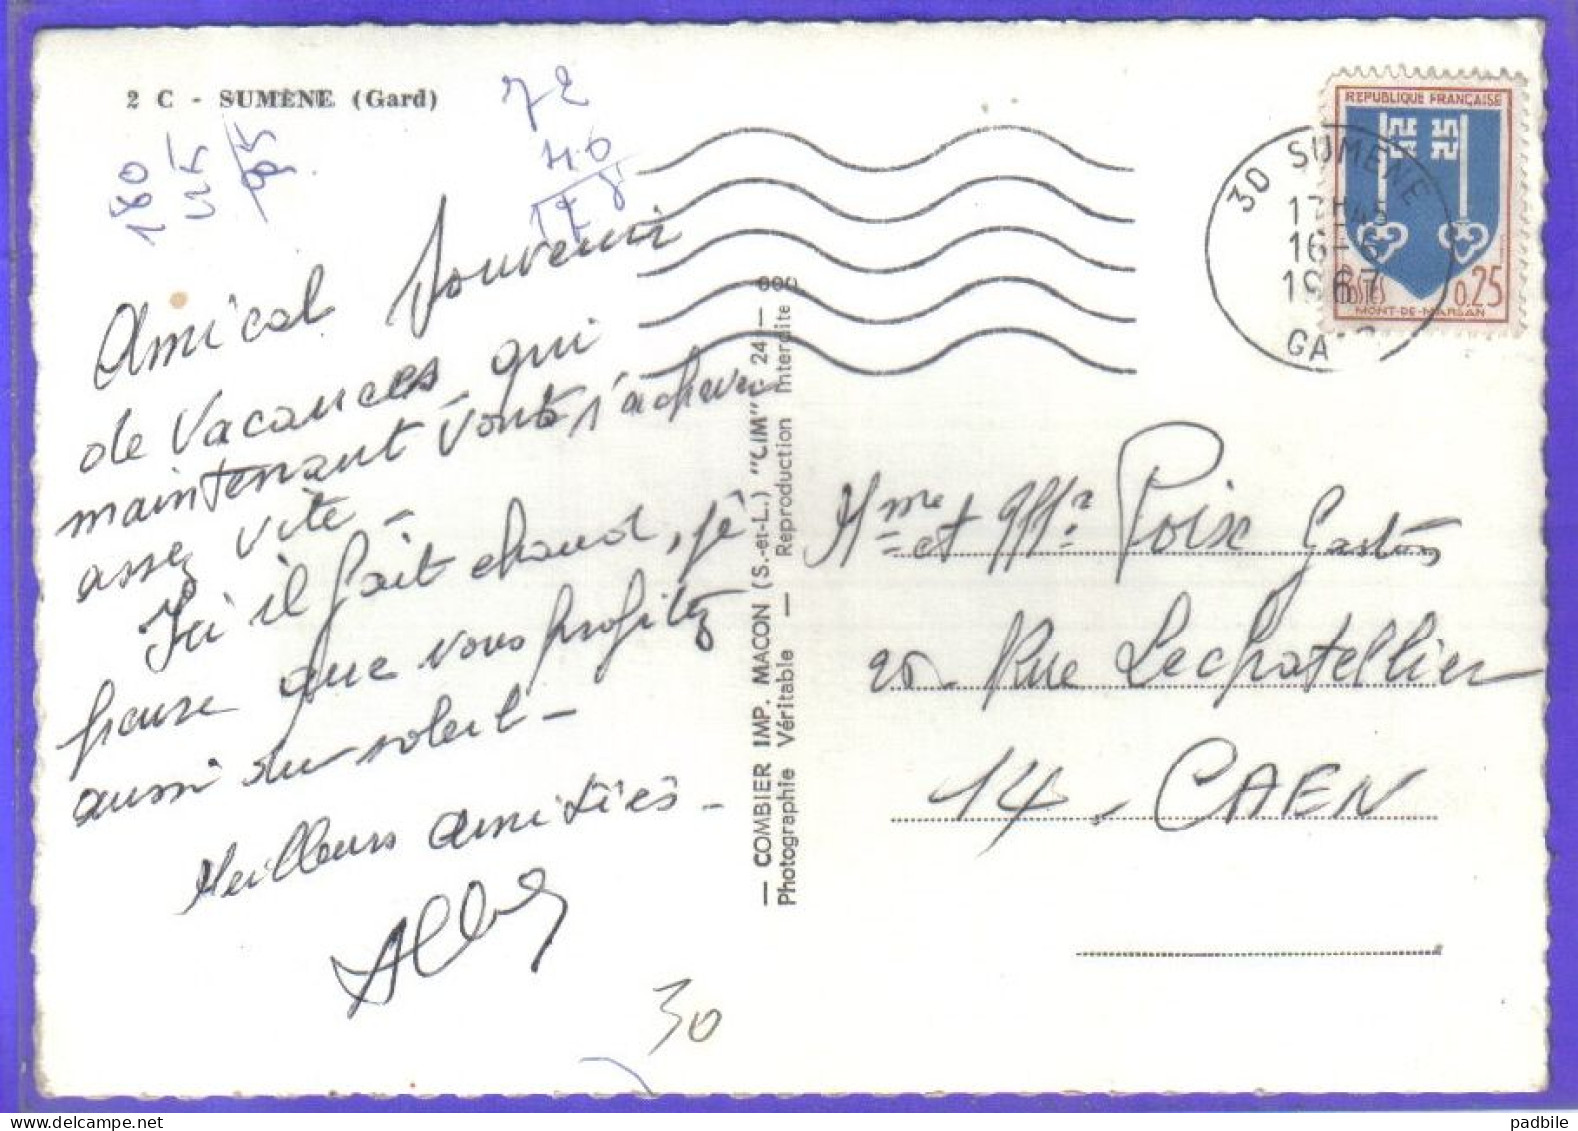 2 C - SUMÈNE (Gard)
180
72
46
Amical Souvenir
de Vacances qui
maintenant vont s'achever
assez vite -
Ici il fait chaud, je
pense que vous profitez
aussi du soleil -
Meilleurs amitiés -
30
— COMBIER IMP. MACON (S.-et-L.) "CIM" 24 —
Photographie Véritable — Reproduction interdite
30 SUMENE
17H45
16-
1967
GA
REPUBLIQUE FRANÇAISE
POSTES 0.25
MONT-DE-MARSAN
Mme et Mr Poix Gaston
Rue Lechatellier
14 - CAEN